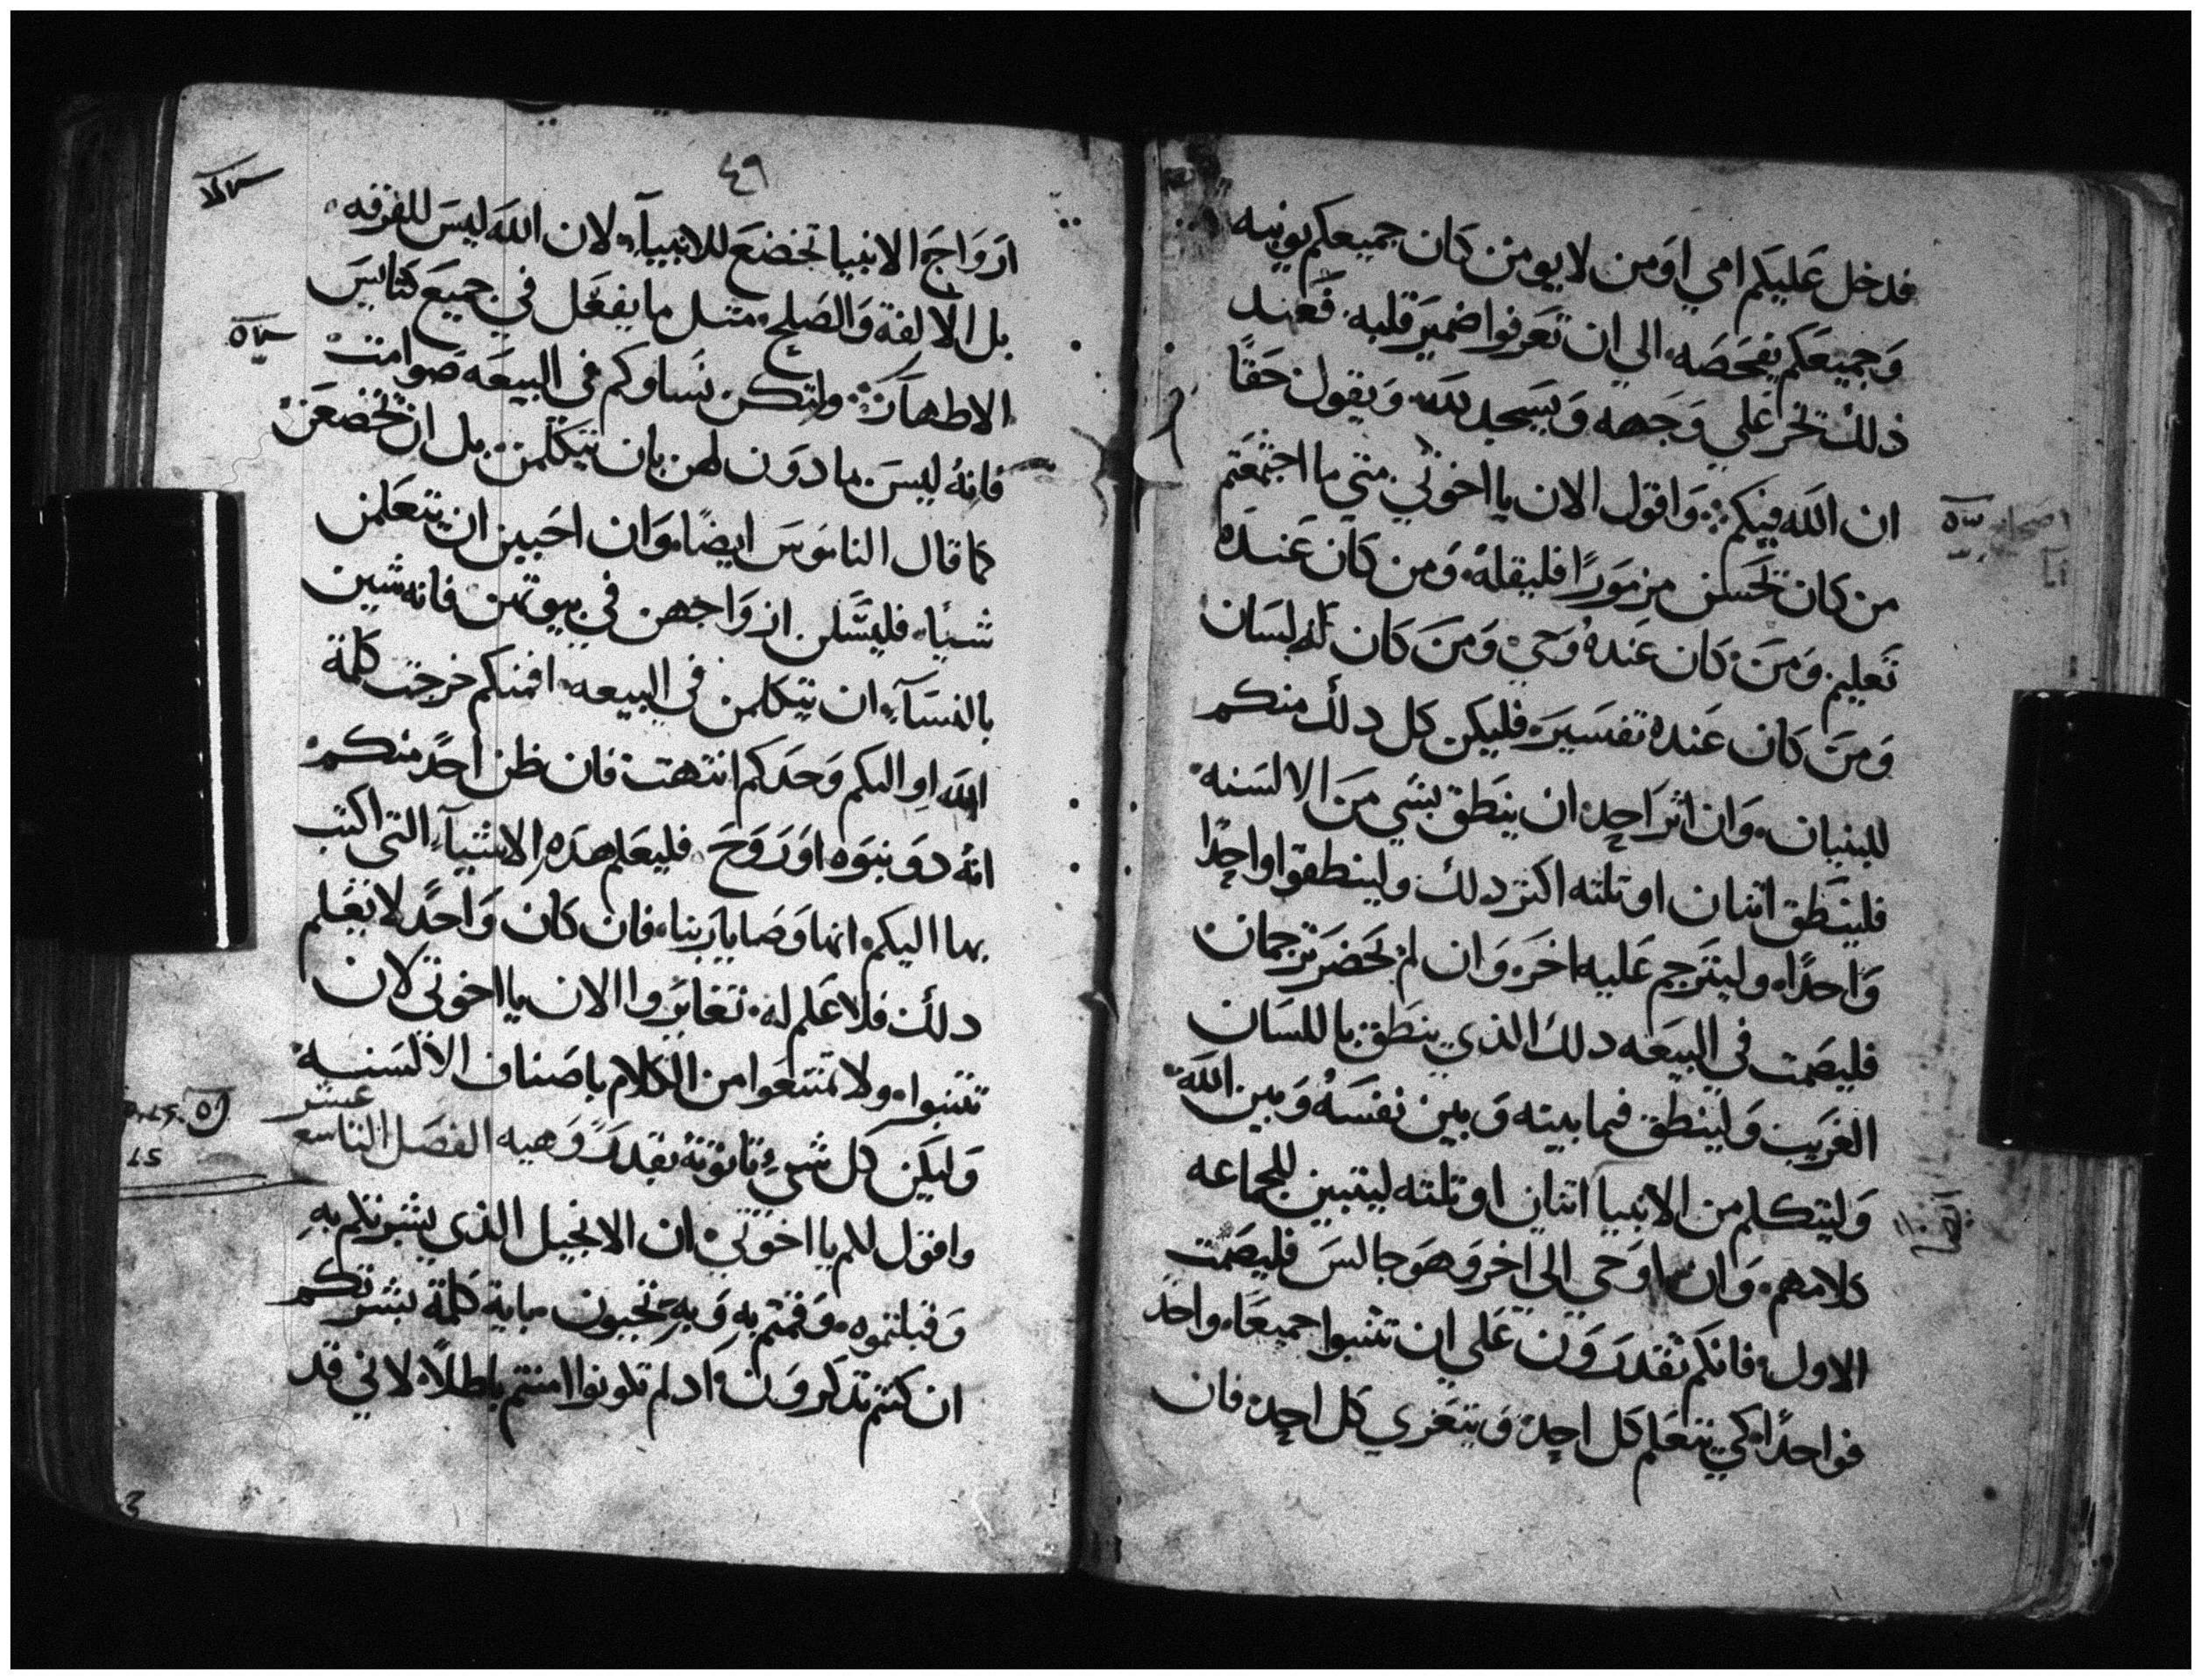 فدخل عليكم امي او من لا يومن كان جميعكم يوبنه
وجميعكم يفحصه الي ان تعرفوا ضمير قلبه فعند
ذلك تخر علي وجهه ويسجد لله ويقول حقا
ان الله فيكم واقول الان يا اخوتي متي ما اجتمعتم
من كان تحسن مزمورا فليقله ومن كان عنده
تعليم ومن كان عنده وحي ومن كان له لسان
ومن كان عنده تفسير فليكن كل دلك منكم
للبنيان وان اثر احد ان ينطق بشي من الالسنه
فلينطق اتنان او تلته اكتر دلك ولينطقوا واحدا
واحدا وليترجم عليه اخر وان لم يحضر ترجمان
فليصمت في البيعه دلك الذي ينطق باللسان
الغريب ولينطق فيما بينه وبين نفسه وبين الله
وليتكلم من الانبيا اتنان او تلته ليتبين للجماعه
كلامهم وان اوحي الي اخر وهو جالس فليصمت
الاول فانكم تقدرون علي ان تتنبوا جميعا واحد
فواحدا كي يتعلم كل احد ويتعزي كل احد فان
٤٩
ارواح الانبيا تخضع للانبياء لان الله ليس للفرقه
بل الالفة والصلح متل ما يفعل في جميع كنايس
الاطهار ولتكن نساوكم في البيعه صوامت
فانه ليس مادون لهن بان يتكلمن بل ان تخضعن
كما قال الناموس ايضا وان احببن ان يتعلمن
شيا فليسلن ازواجهن في بيوتهن فانه شين
بالنساء ان يتكلمن في البيعه افمنكم خرجت كلمة
الله او اليكم وحدكم انتهت فان ظن احد منكم
انه دو نبوه او روح فليعلم هده الاشياء التي اكتب
بها اليكم انها وصايا ربنا فان كان واحد لا يعلم
دلك فلا علم له تغايروا الان يا اخوتي لان
تتنبوا ولا تمتنعوا من الكلام باصناف الالسنه
وليكن كل شي تاتونه بقدر وهيه الفصل التاسع عشر
واقول لكم يا اخوتي ان الانجيل الذي بشرتكم به
وقبلتموه وقمتم به وبه تحيون باية كلمة بشرتكم
ان كنتم تدكرون اد لم تكونوا امنتم باطلا لاني قد